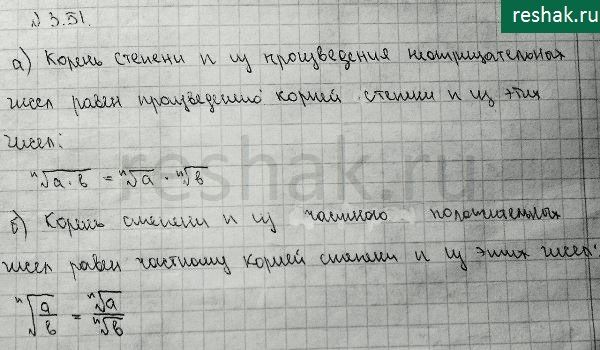 reshak.ru
№ 3.51.
а) Корень степени n из произведения неотрицательных
чисел равен произведению корней степени n из этих
чисел:
ⁿ√a·b = ⁿ√a · ⁿ√b
reshak.ru
б) Корень степени n из частного положительных
чисел равен частному корней степени n из этих чисел:
ⁿ√(a/b) = ⁿ√a / ⁿ√b